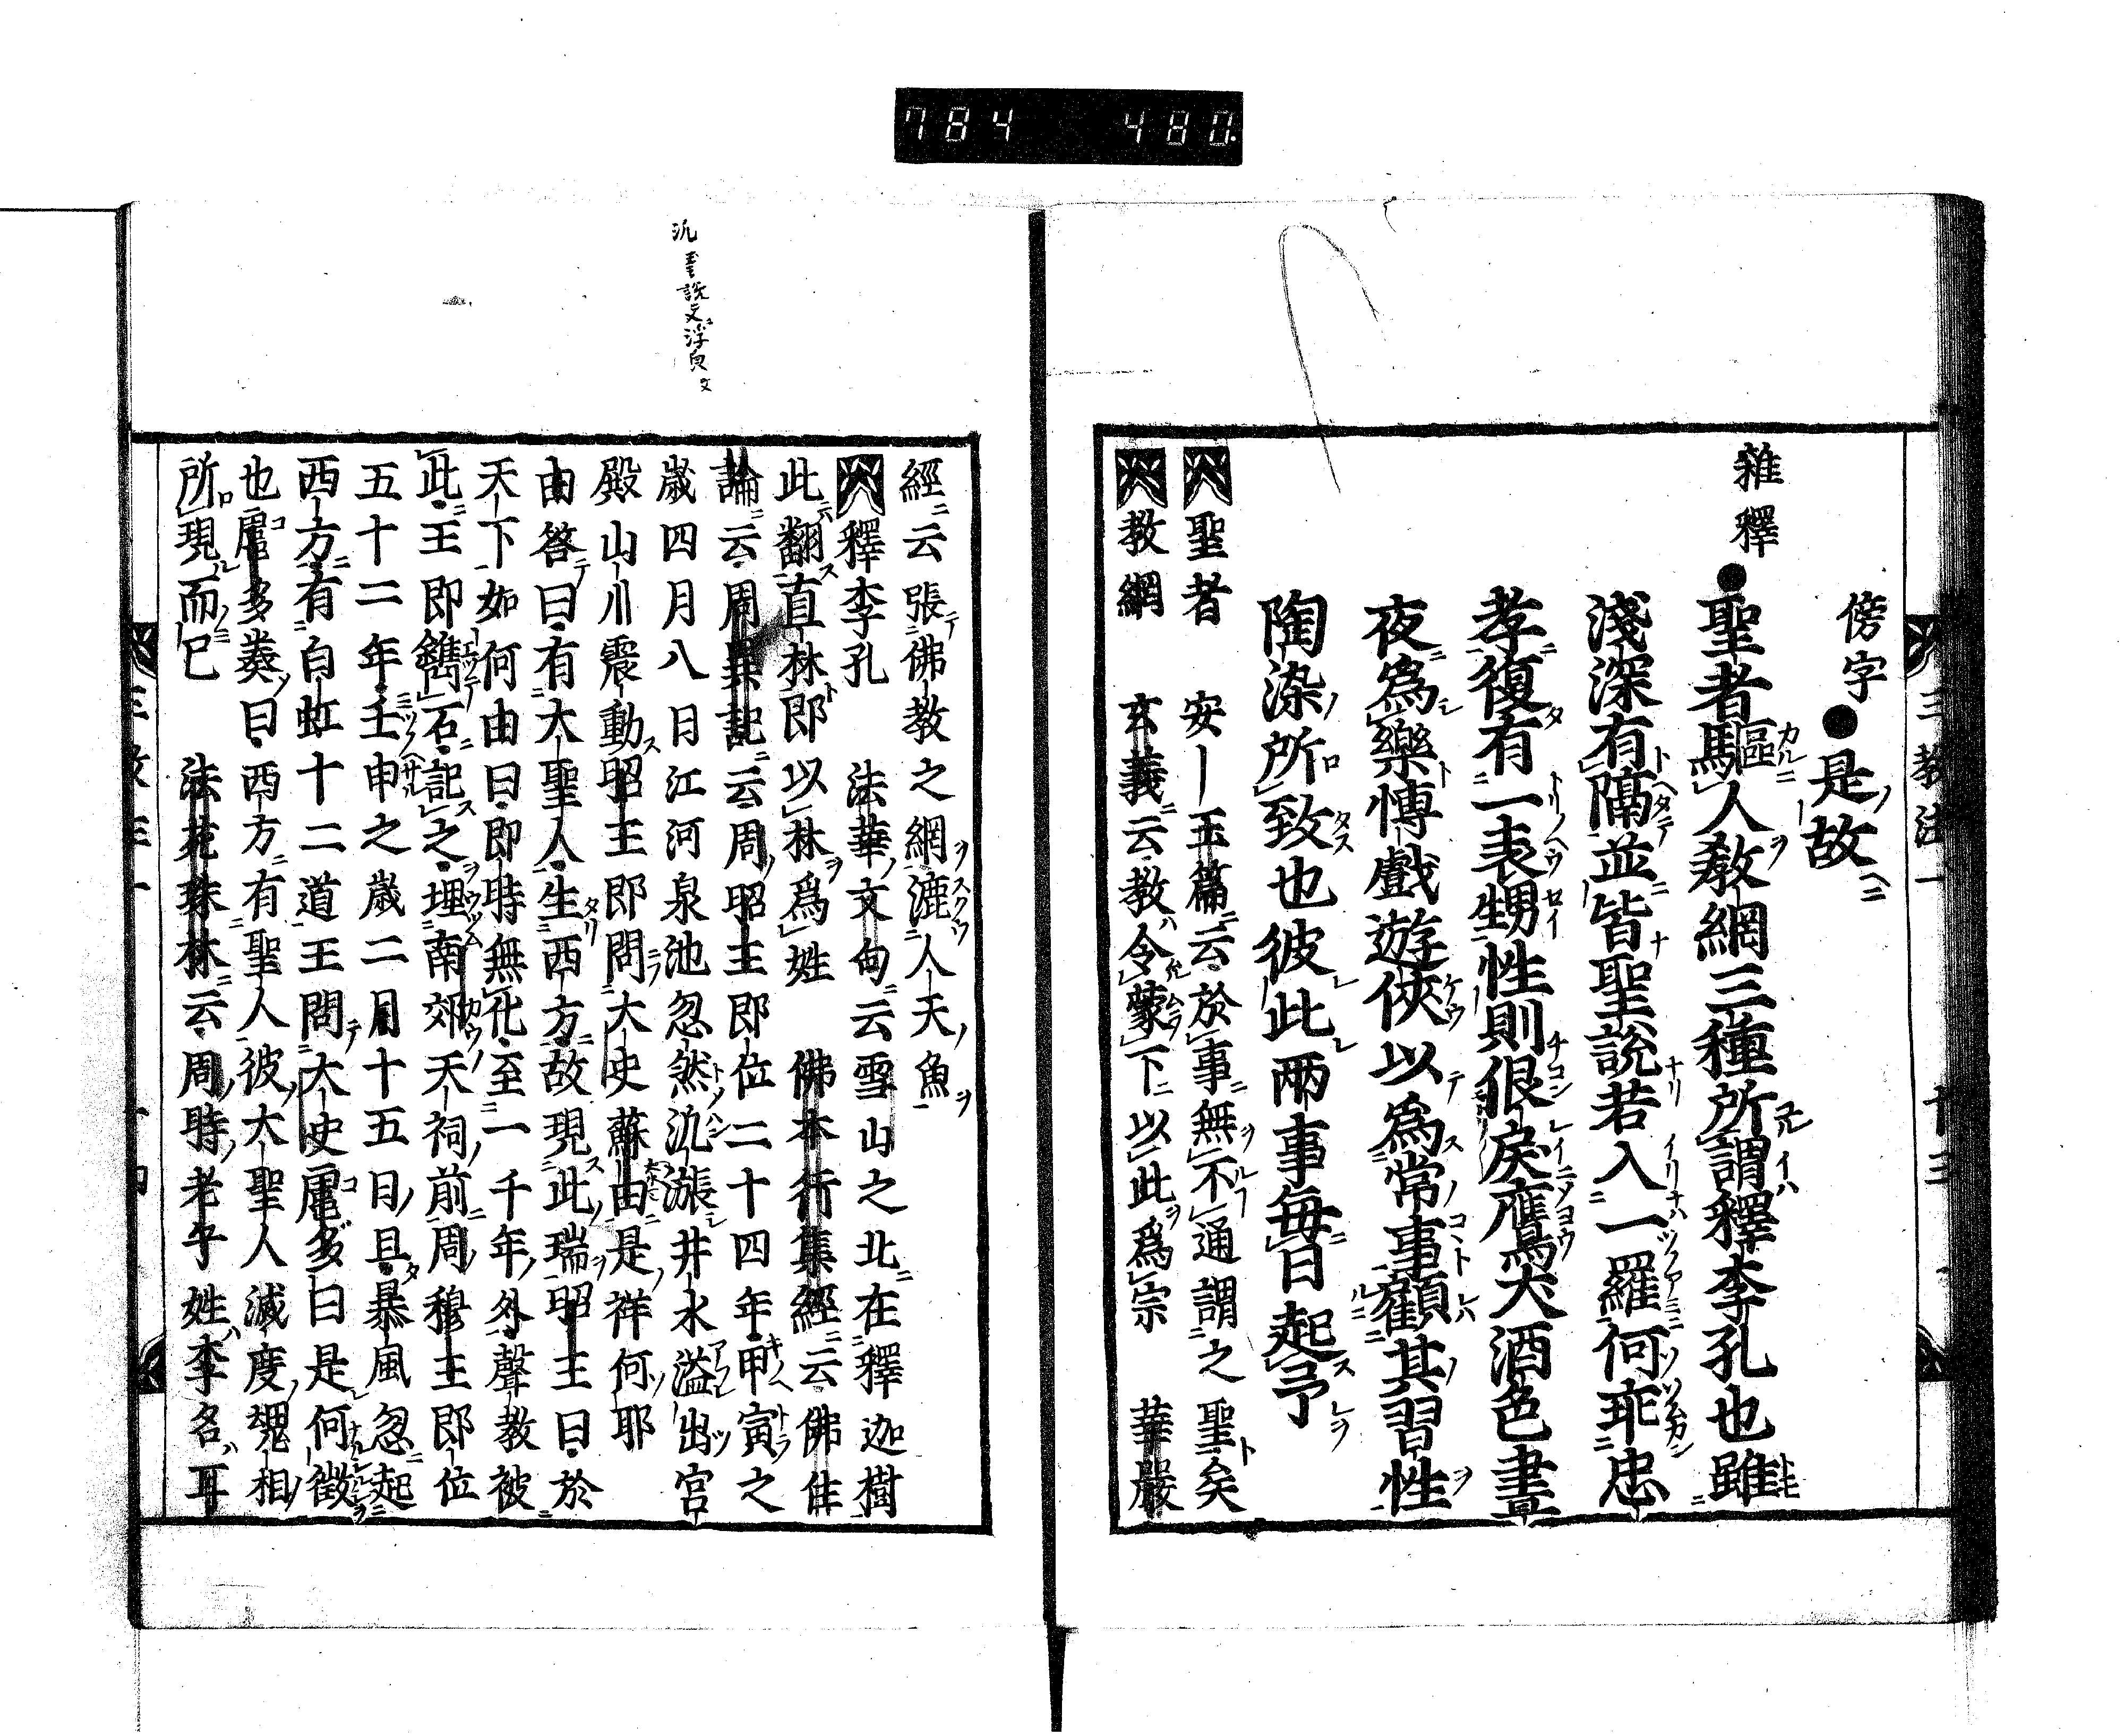 784 480
雜釋
傍字●是故
●聖者驅人教網三種所謂釋李孔也雖
淺深有隔並皆聖說若入一羅何乖忠
孝復有一表甥性則佷戾鷹犬酒色晝
夜爲樂博戲遊俠以爲常事顧其習性
陶染所致也彼此兩事每日起予
聖者 安—玉篇云於事無不通謂之聖矣
教網 玄義云教令蒙下以此爲宗 華嚴
經云張佛教之網漉人天魚
釋李孔 法華文句云雪山之北在釋迦樹
此翻直林郎以林爲姓 佛本行集經云佛住
論云周異記云周昭王即位二十四年甲寅之
歲四月八日江河泉池忽然汎漲井水溢出宮
殿山川震動昭王即問大史蘇由是祥何耶
由答曰有大聖人生西方故現此瑞昭王曰於
天下如何由曰即時無化至一千年外聲教被
此王即鐫石記之埋南郊天祠前周穆王即位
五十二年壬申之歲二月十五日且暴風忽起
西方有白虹十二道王問大史扈多曰是何徵
也扈多奏曰西方有聖人彼大聖人滅度相
所現而已 法苑珠林云周時老子姓李名耳
三教注一 十三